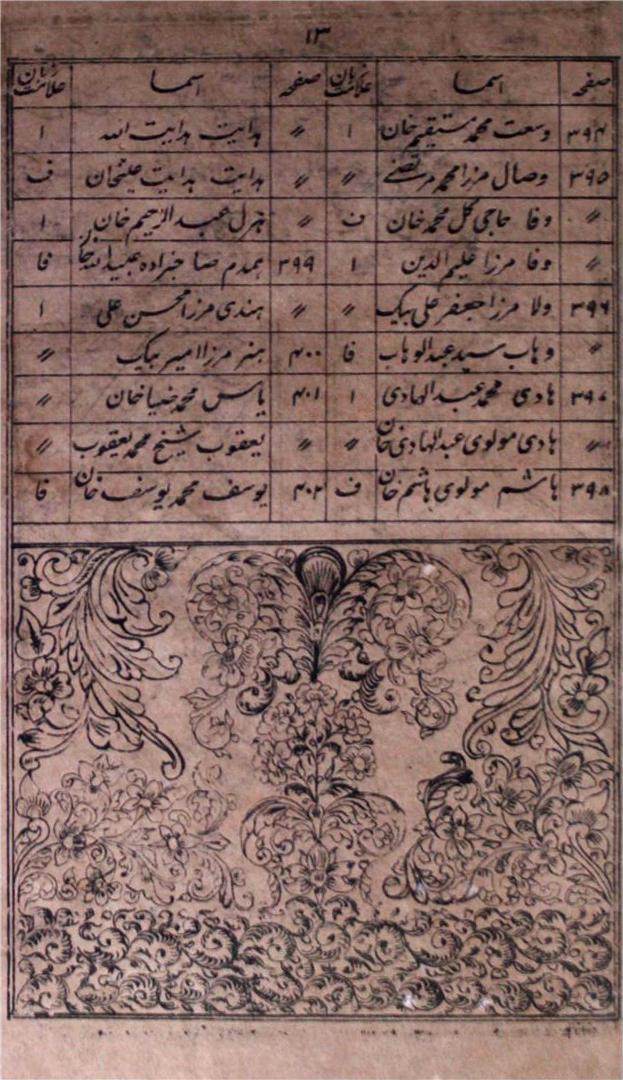 ۱۳
صفحہ اسما علامت زبان صفحہ اسما علامت زبان
۳۹۴ وسعت محمد مستقیم خان ا 〃 ہدایت ہدایت اللہ ا
۳۹۵ وصال مرزا محمد مرتضے 〃 〃 ہدایت ہدایت علیخان ف
〃 وفا حاجی گل محمد خان ف 〃 ہزل عبدالرحیم خان ا
〃 وفا مرزا علیم الدین ا ۳۹۹ ہمدم صاحبزادہ عبید اللہ خان فا
۳۹۶ ولا مرزا جعفر علی بیگ 〃 〃 ہندی مرزا محسن علی ا
〃 وہاب سید عبدالوہاب فا ۴۰۰ ہنر مرزا امیر بیگ 〃
۳۹۷ ہادی محمد عبدالہادی ا ۴۰۱ یاس محمد ضیا خان 〃
〃 ہادی مولوی عبدالہادی خان 〃 〃 یعقوب شیخ محمد یعقوب 〃
۳۹۸ ہاشم مولوی ہاشم خان ف ۴۰۲ یوسف محمد یوسف خان فا